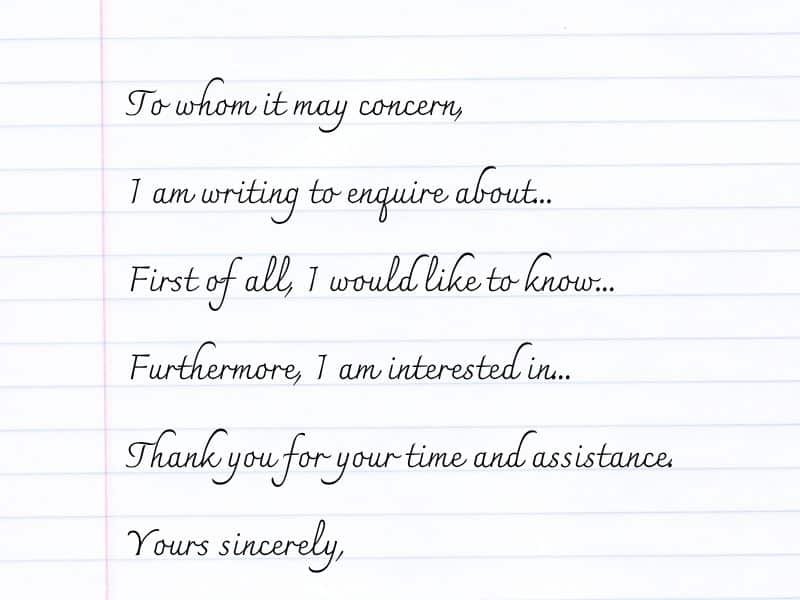 To whom it may concern,
I am writing to enquire about...
First of all, I would like to know...
Furthermore, I am interested in...
Thank you for your time and assistance.
Yours sincerely,